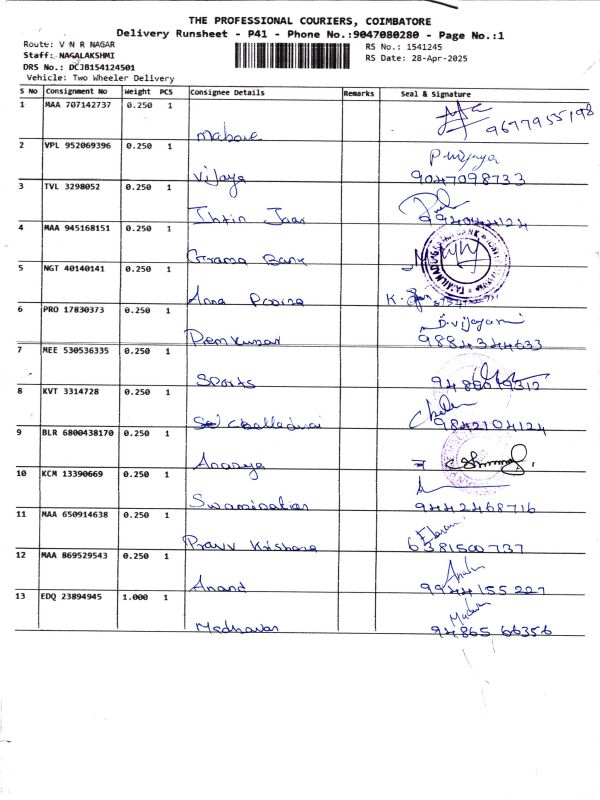 THE PROFESSIONAL COURIERS, COIMBATORE
Delivery Runsheet - P41 - Phone No.:9047080280 - Page No.:1
Route: V N R NAGAR
RS No.: 1541245
Staff: NAGALAKSHMI
RS Date: 28-Apr-2025
DRS No.: DCJB154124501
Vehicle: Two Wheeler Delivery
S No Consignment No Weight PCS Consignee Details Remarks Seal & Signature
1 MAA 707142737 0.250 1
9677955198
2 VPL 952069396 0.250 1 P.Vijaya
Vijaya 9047098733
3 TVL 3298052 0.250 1
4 MAA 945168151 0.250 1
Grama Bank
5 NGT 40140141 0.250 1
Anna
6 PRO 17830373 0.250 1 D.Vijayani
Prem Kumar 9884344633
7 MEE 530536335 0.250 1
Sports
8 KVT 3314728 0.250 1
Chelladurai 9842104124
9 BLR 6800438170 0.250 1
Ananya
10 KCM 13390669 0.250 1
Swaminathan 9442468716
11 MAA 650914638 0.250 1
Pravv Krishana 6381500737
12 MAA 869529543 0.250 1
Anand 9944155227
13 EDQ 23894945 1.000 1
Madhavan 94865 66356